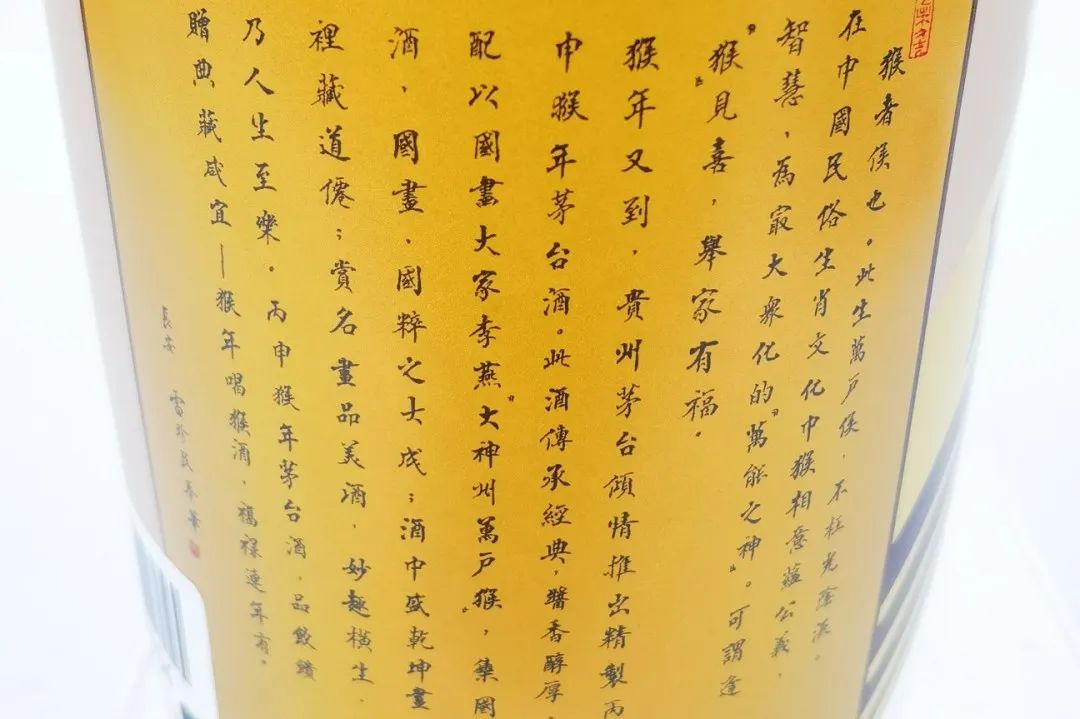 猴者侯也。此生萬戶侯，不枉光陰浜。
在中國民俗生肖文化中猴相意蘊公義，
智慧，為最大眾化的“萬能之神”。可謂逢
“猴”見喜，舉家有福。
猴年又到，貴州茅台傾情推出精製丙
申猴年茅台酒。此酒傳承經典，醬香醇厚，
配以國畫大家李燕“大神州萬戶猴”，集國
酒、國畫、國粹之大成；酒中盛乾坤畫
裡藏道僊；賞名畫品美酒，妙趣橫生，
乃人生至樂。丙申猴年茅台酒，品飲饋
贈典藏咸宜——猴年喝猴酒，福祿連年有。
長安 雷珍民奉筆